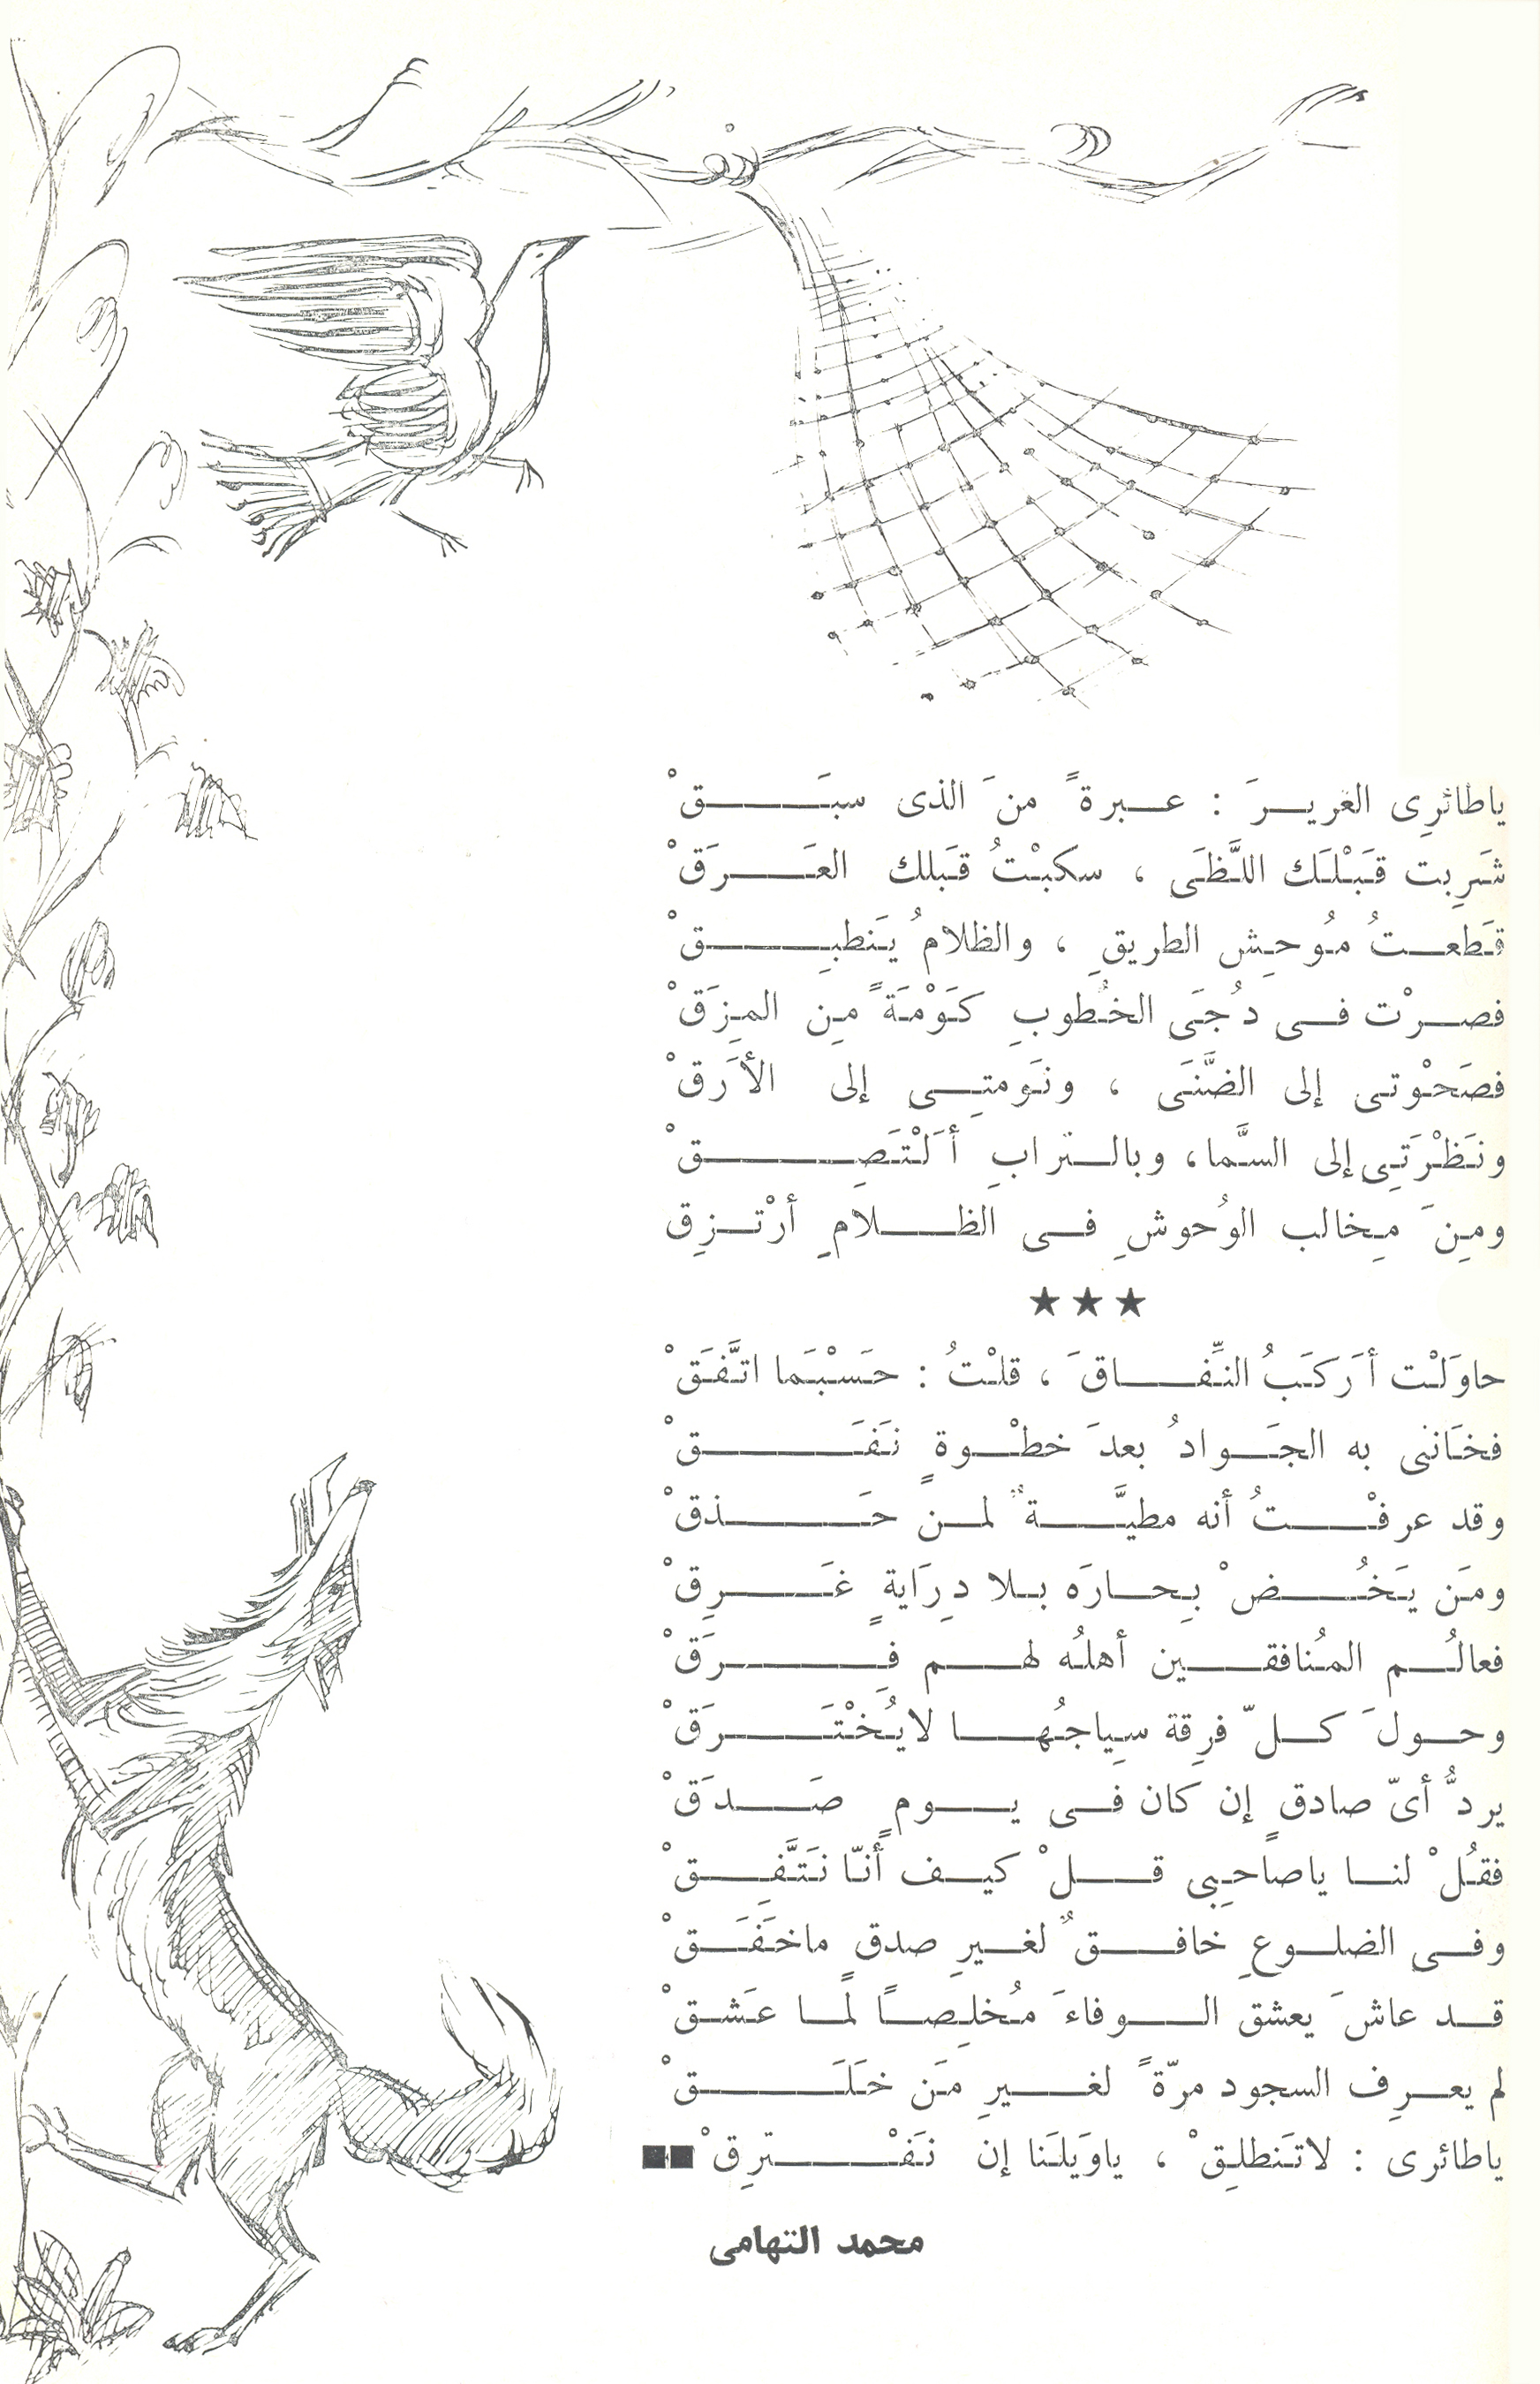 ياطائرِى الغريرَ : عبرةً منَ الذى سبَقْ
شَرِبت قَبْلَك اللَّظَى ، سكبْتُ قَبلك العَرَقْ
قَطعتُ مُوحِش الطريقِ ، والظلامُ يَنطبِقْ
فصرْت فى دُجَى الخُطوبِ كَوْمَةً مِن المِزَقْ
فصَحْوتى إلى الضَّنَى ، ونَومتِى إلى الأرَقْ
ونَظْرَتِى إلى السَّما، وبالترابِ أَلْتَصِقْ
ومِنَ مِخالب الوُحوشِ فى الظلامِ أرْتزِق
★ ★ ★
حاوَلْت أَركَبُ النِّفاقَ ، قلْتُ : حَسْبَما اتَّفَقْ
فخَاننى به الجَوادُ بعدَ خطْوةٍ نَفَقْ
وقد عرفْتُ أنه مطيَّةٌ لمن حَذقْ
ومَن يَخُضْ بِحارَه بلا دِرَايةٍ غَرِقْ
فعالُم المُنافقين أهلُه لهم فِرَقْ
وحولَ كلّ فرِقة سِياجُها لايُخْتَرَقْ
يردُّ أىّ صادق إن كان فى يومٍ صَدَقْ
فقُلْ لنا ياصاحِبِى قلْ كيف أنّا نَتَّفِقْ
وفى الضلوعِ خافقٌ لغيرِ صدقٍ ماخَفَقْ
قد عاشَ يعشق الوفاءَ مُخلِصاً لما عَشقْ
لم يعرِف السجود مرّةً لغيرِ مَن خَلَقْ
ياطائرى : لاتَنطلِقْ ، ياوَيلَنا إن نَفْترِقْ ■■
محمد التهامى